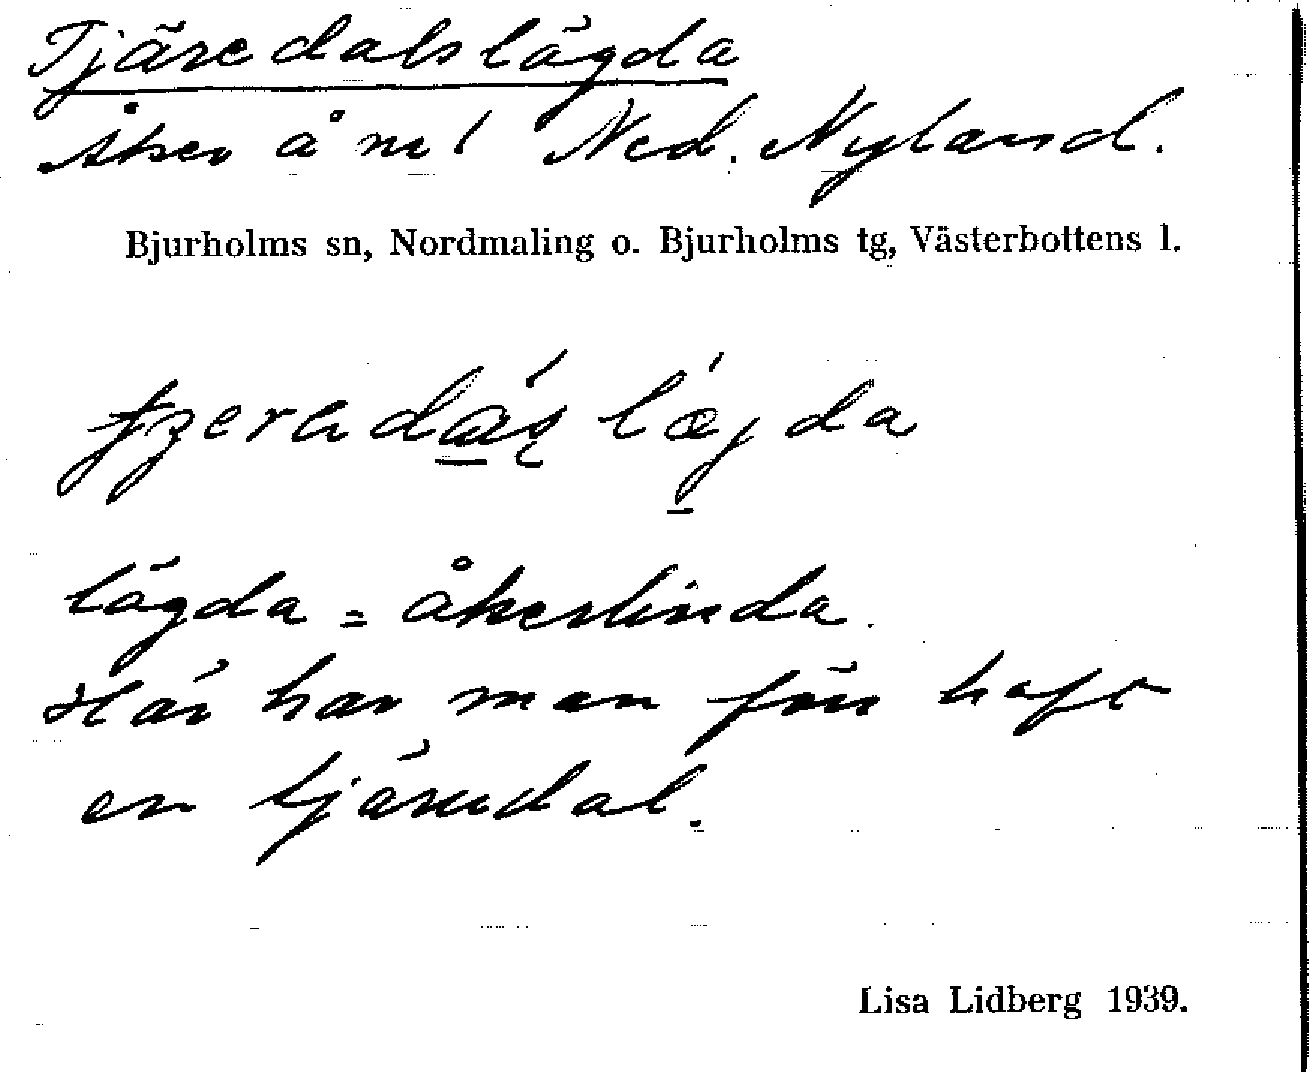 Tjäredalslägda
Åker å nr 1 Ned. Nyland.
Bjurholms sn, Nordmaling o. Bjurholms tg, Västerbottens l.
lägda = åkerlinda.
Här har man förr haft
en tjärudal.
Lisa Lidberg 1939.